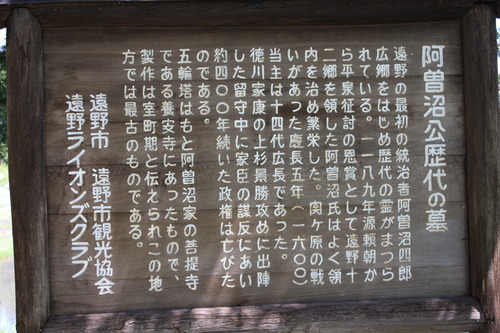 阿曽沼公歴代の墓
遠野の最初の統治者阿曽沼四郎
広郷をはじめ歴代の霊がまつら
れている。一一八九年源頼朝か
ら平泉征討の恩賞として遠野十
二郷を領した阿曽沼氏はよく領
内を治め繁栄した。関ヶ原の戦
いがあった慶長五年(一六〇〇)
当主は十四代広長であった。
徳川家康の上杉景勝攻めに出陣
した留守中に家臣の謀反にあい
約四〇〇年続いた政権はほろびた
のである。
五輪塔はもと阿曽沼家の菩提寺
である養安寺にあったもので、
製作は室町期と伝えられこの地
方では最古のものである。
遠野市 遠野市観光協会
遠野ライオンズクラブ